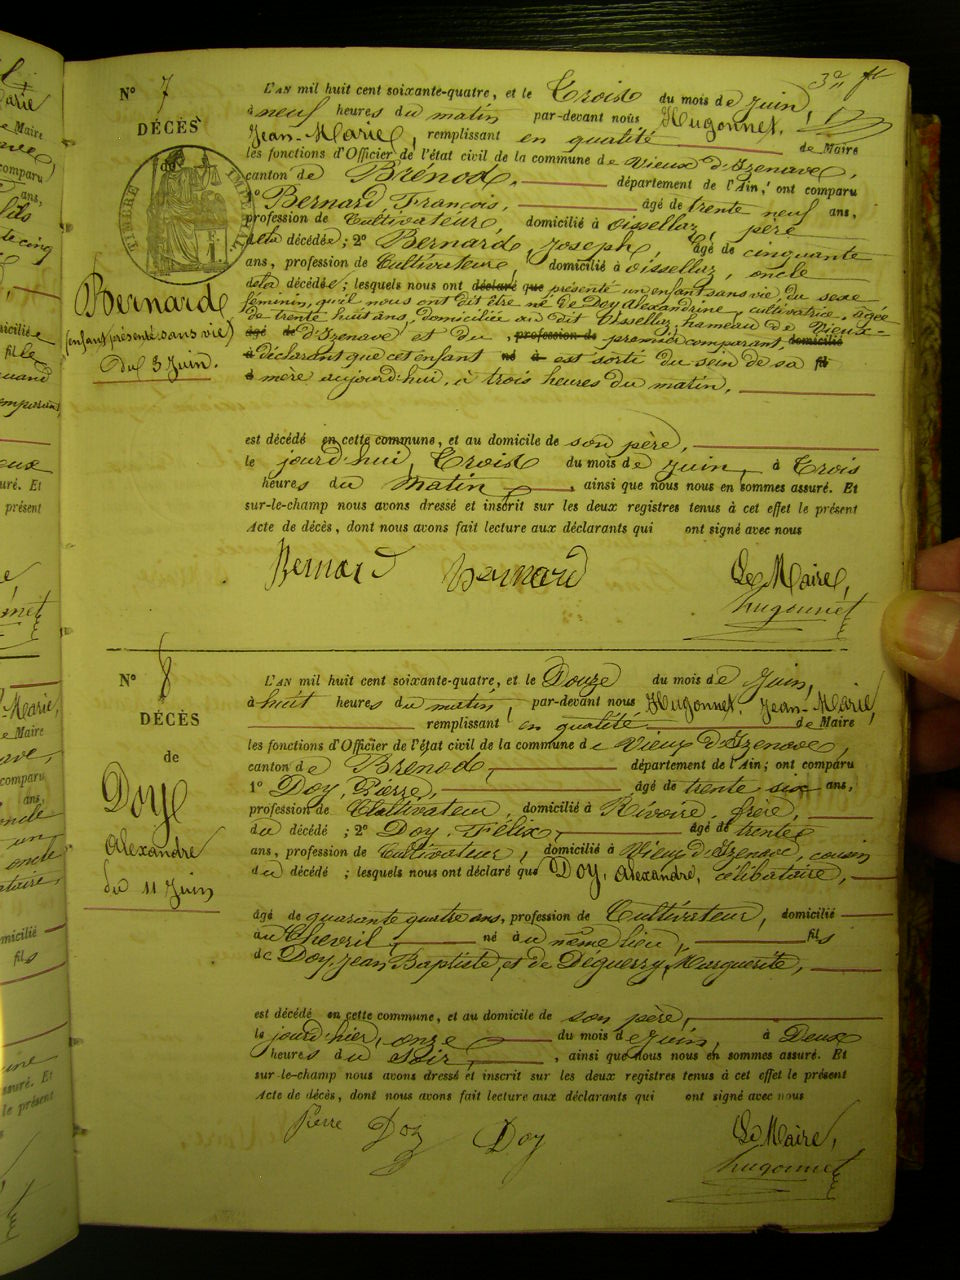 3e ft
N° 7
DÉCÈS
de
TIMBRE IMPERIAL
Bernard
(enfant présenté sans vie)
Du 3 Juin.
L'AN mil huit cent soixante-quatre, et le Trois du mois de Juin,
à neuf heures du matin par-devant nous Hugonnet,
Jean-Marie, remplissant en qualité de Maire
les fonctions d'Officier de l'état civil de la commune de Vieux d'Izenave,
canton de Brénod, département de l'Ain, ont comparu
1° Bernard, François, âgé de trente neuf ans,
profession de Cultivateur, domicilié à Oissellaz, père
de la décédée; 2° Bernard Joseph, âgé de cinquante
ans, profession de Cultivateur, domicilié à Oissellaz, oncle
de la décédée; lesquels nous ont déclaré que présenté un enfant sans vie, du sexe
féminin, qu'il nous ont dit être né de Doy alexandrine, cultivatrice, agée
de trente huit ans, domiciliée au dit Oissellaz, hameau de Vieux-
âgé de d'Izenave et du, profession de premier comparant, domicilié
à déclarant que cet enfant né à est sorti du sein de sa fil
d mère aujourd'hui, à trois heures du matin,
est décédé en cette commune, et au domicile de son père,
le jourd'hui, Trois du mois de Juin, à Trois
heures du matin, ainsi que nous nous en sommes assuré. Et
sur-le-champ nous avons dressé et inscrit sur les deux registres tenus à cet effet le présent
Acte de décès, dont nous avons fait lecture aux déclarants qui ont signé avec nous
Bernard Bernard Le Maire,
hugonnet
N° 8
DÉCÈS
de
Doy
Alexandre
du 11 Juin
L'AN mil huit cent soixante-quatre, et le Douze du mois de Juin,
à huit heures du matin, par-devant nous Hugonnet, Jean-Marie,
remplissant en qualité de Maire
les fonctions d'Officier de l'état civil de la commune de Vieux d'Izenave,
canton de Brénod, département de l'Ain; ont comparu
1° Doy, Pierre, âgé de trente six ans,
profession de Cultivateur, domicilié à Rivoire, frère,
du décédé; 2° Doy, Félix, âgé de trente
ans, profession de Cultivateur, domicilié à Vieux d'Izenave, cousin
du décédé; lesquels nous ont déclaré que Doy, Alexandre, célibataire,
âgé de quarante quatre ans, profession de Cultivateur, domicilié
au Chevril, né à u même lieu, fils
de Doy, Jean Baptiste, et de Déguerry, Marguerite,
est décédé en cette commune, et au domicile de son père,
le jourd'hier, onze du mois de Juin, à Deux
heures du soir, ainsi que nous nous en sommes assuré. Et
sur-le-champ nous avons dressé et inscrit sur les deux registres tenus à cet effet le présent
Acte de décès, dont nous avons fait lecture aux déclarants qui ont signé avec nous
Pierre Doy Doy Le Maire,
hugonnet